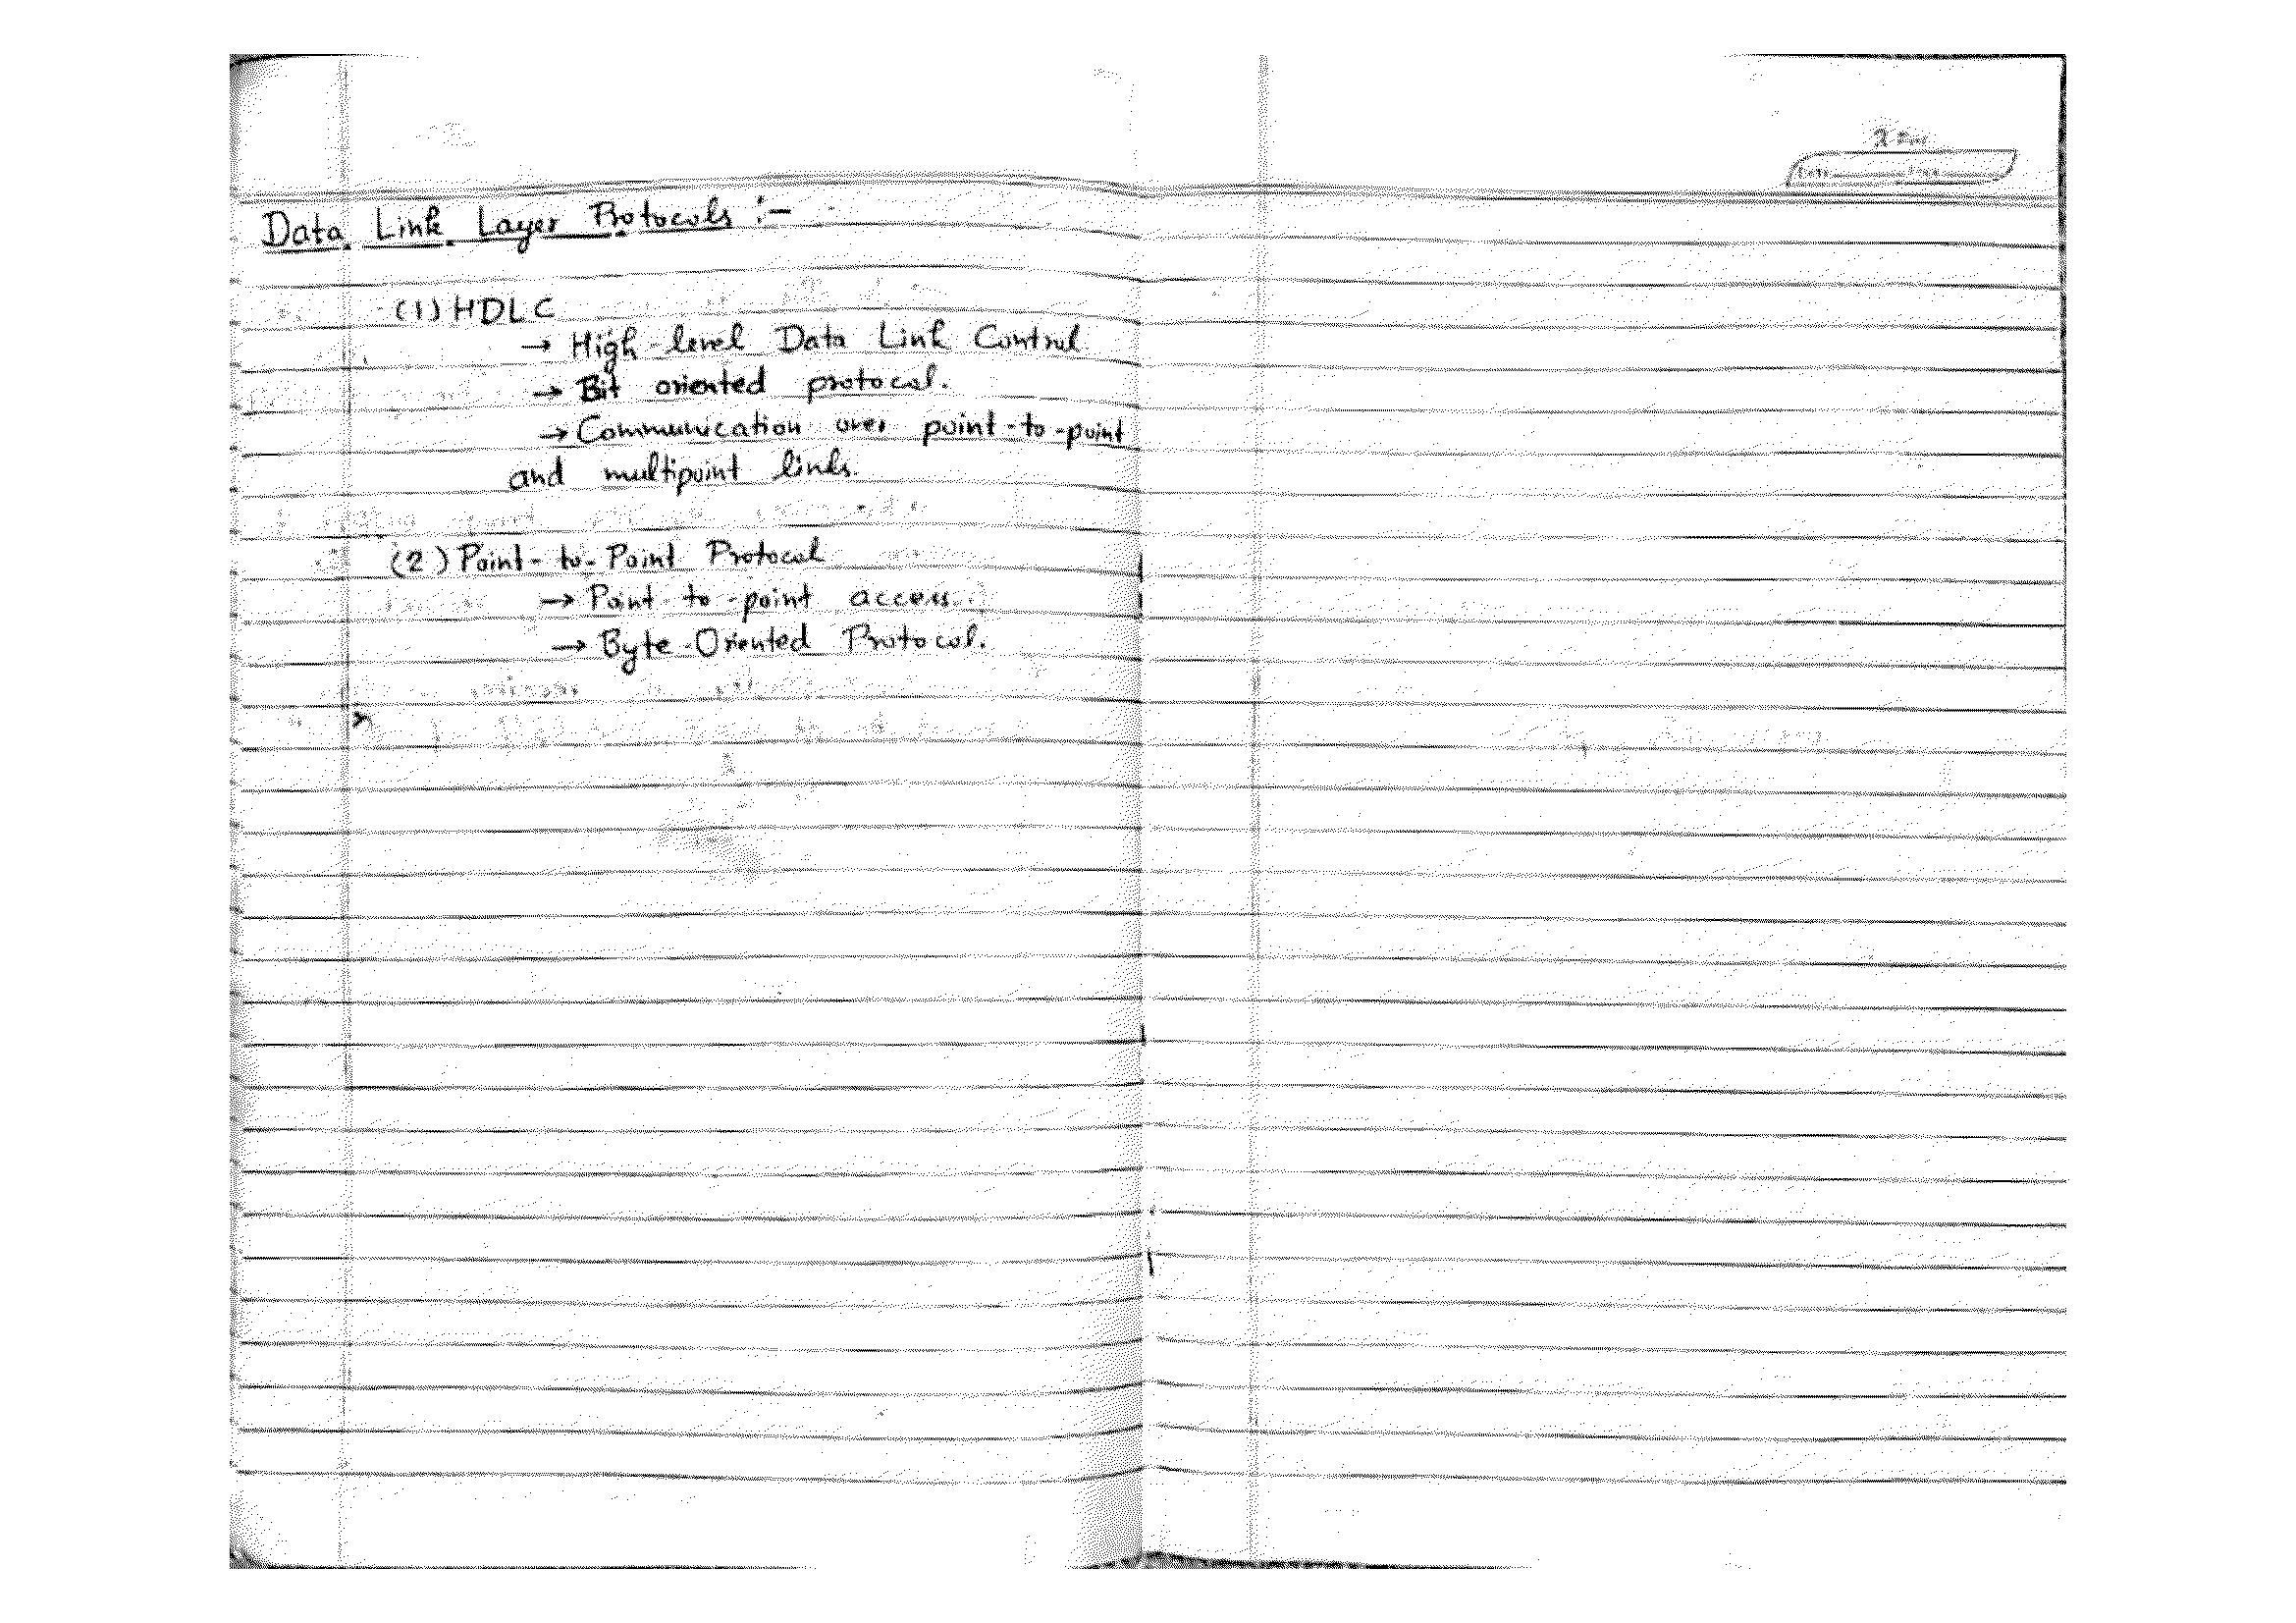 Data Link Layer Protocols :-
(1) HDLC
→ High-level Data Link Control
→ Bit oriented protocol.
→ Communication over point-to-point
and multipoint links.
(2) Point-to-Point Protocol
→ Point-to-point access.
→ Byte-Oriented Protocol.